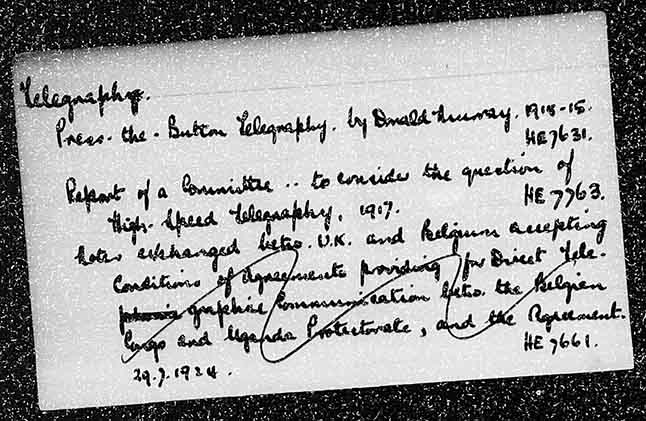 Telegraphy.
Press-the-Button Telegraphy. by Donald Murray. 1914-15.
HE7631.
Report of a Committee .. to consider the question of
High-Speed Telegraphy, 1917.
HE 7763.
Notes exchanged betw. U.K. and Belgium accepting
Conditions of Agreements providing for Direct Tele-
graphic Communication betw. the Belgian
Congo and Uganda Protectorate, and the Agreement.
29.7.1924.
HE7661.